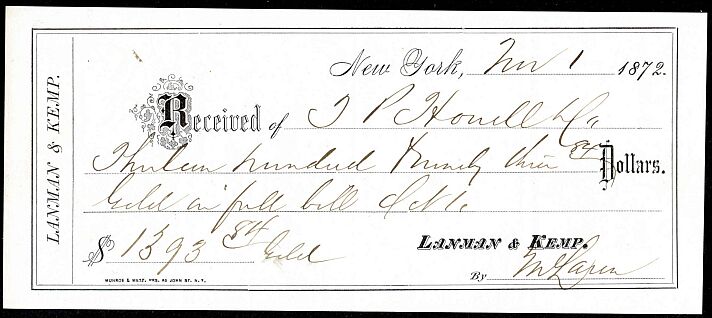 LANMAN & KEMP.
New York, Nov 1 1872.
Received of T P Howell & Co
Thirteen hundred & ninety three 84 Dollars.
Gold in full bill
$ 1393 84 Gold
LANMAN & KEMP.
By McLaren
MUNROE & METZ, 40 JOHN ST. N.Y.